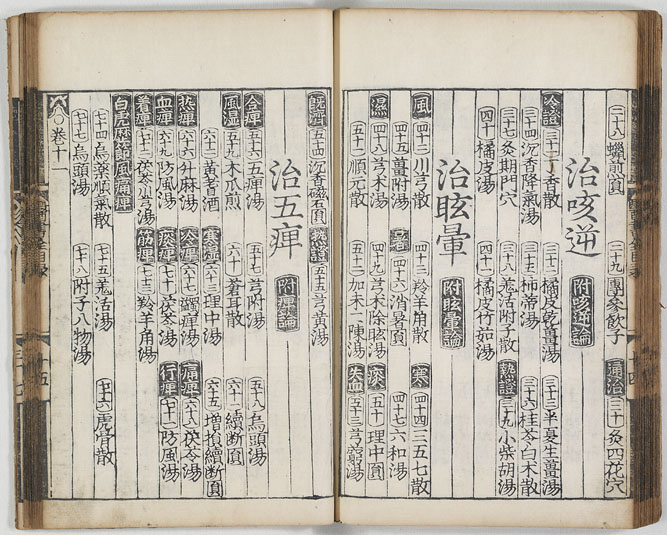 二十八 蠟煎圓 二十九 團參飲子 通治 三十 灸四花穴
治咳逆 附咳逆論
冷證 三十一 丁香散 三十二 橘皮乾薑湯 三十三 半夏生薑湯
三十四 沉香降氣湯 三十五 柿蒂湯 三十六 桂苓白朮散
三十七 灸期門穴 三十八 羌活附子散 熱證 三十九 小柴胡湯
四十 橘皮湯 四十一 橘皮竹茹湯
治眩暈 附眩暈論
風 四十二 川芎散 四十三 羚羊角散 寒 四十四 三五七散
四十五 薑附湯 暑 四十六 消暑圓 四十七 六和湯
濕 四十八 芎朮湯 四十九 芎朮除眩湯 痰 五十 理中圓
五十一 順元散 五十二 加味二陳湯 失血 五十三 芎藭湯
五十四 沉香磁石圓 熱證 五十五 芎黃湯
治五痹 附痹論
合痹 五十六 五痹湯 五十七 芎附湯 五十八 烏頭湯
風濕 五十九 木瓜煎 六十 蒼耳散 六十一 續斷圓
六十二 黃耆酒 理中湯 六十五 增損續斷圓
熱痹 六十六 升麻湯 冷痹 六十七 蠲痹湯 六十八 茯苓湯
血痹 六十九 防風湯 痰痹 七十 茯苓湯 行痹 七十一 防風湯
著痹 七十二 茯苓川芎湯 筋痹 七十三 羚羊角湯
白虎歷節風痛痹
七十四 烏藥順氣散 七十五 羌活湯 七十六 虎骨散
七十七 烏頭湯 七十八 附子八物湯
卷十一